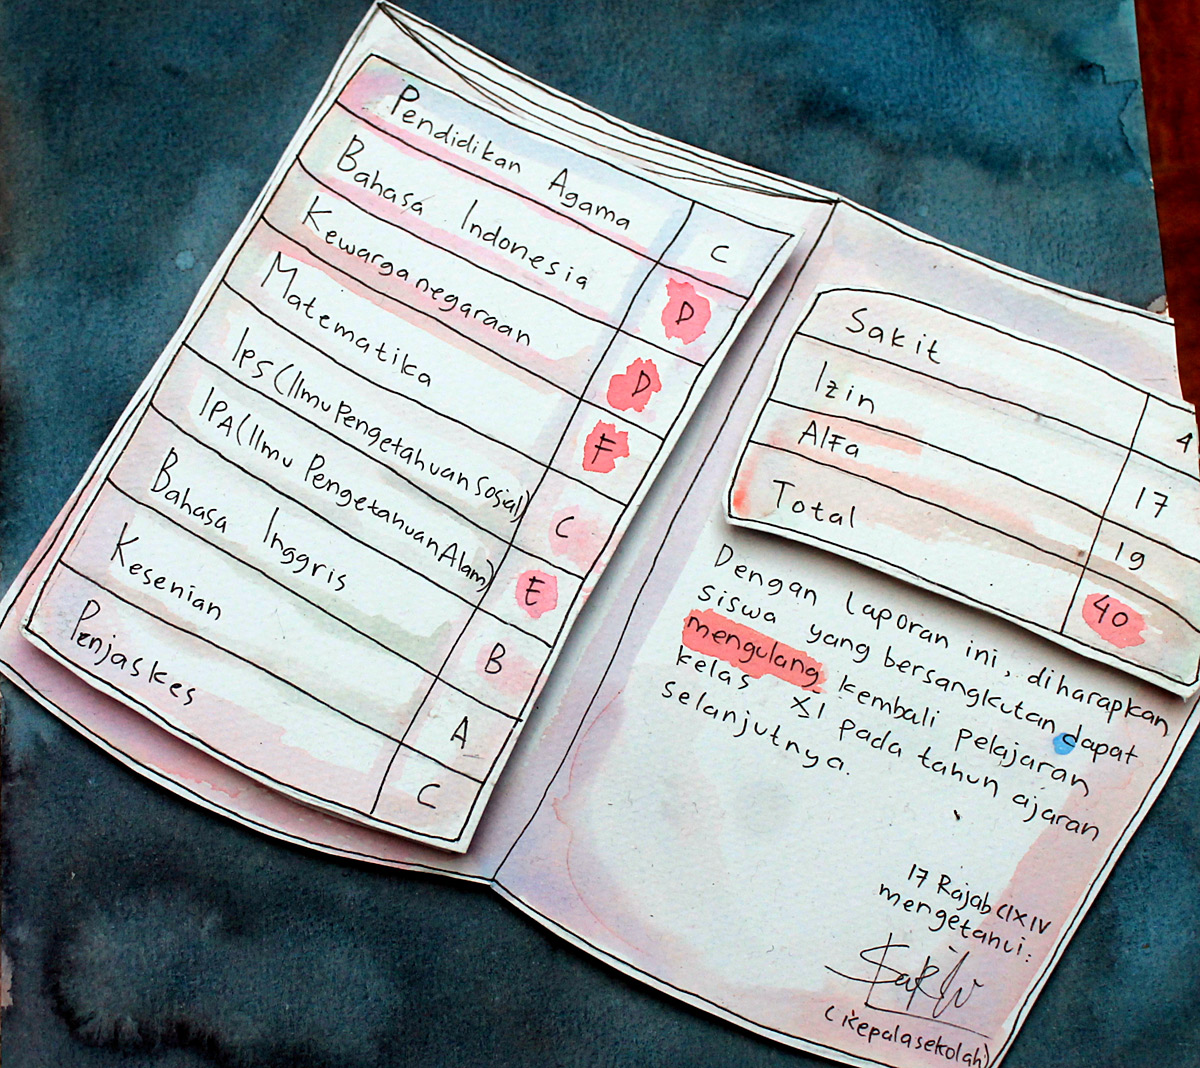 Pendidikan Agama C
Bahasa Indonesia D
Kewarganegaraan D
Matematika F
IPS (Ilmu Pengetahuan Sosial) C
IPA (Ilmu Pengetahuan Alam) E
Bahasa Inggris B
Kesenian A
Penjaskes C
Sakit 4
Izin 17
Alfa 19
Total 40
Dengan laporan ini, diharapkan
siswa yang bersangkutan dapat
mengulang kembali pelajaran
kelas XI pada tahun ajaran
selanjutnya.
17 Rajab CIXIV
mengetahui:
(Kepala sekolah)